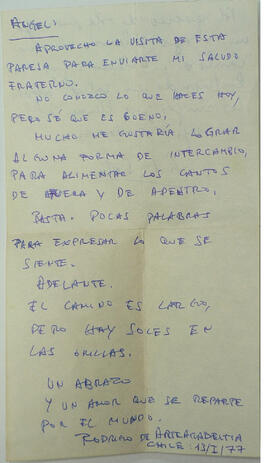 ANGEL:
APROVECHO LA VISITA DE ESTA
PAREJA PARA ENVIARTE MI SALUDO
FRATERNO.
NO CONOZCO LO QUE HACES HOY,
PERO SÉ QUE ES BUENO,
MUCHO ME GUSTARÍA LOGRAR
ALGUNA FORMA DE INTERCAMBIO,
PARA ALIMENTAR LOS CANTOS
DE AFUERA Y DE ADENTRO,
BASTA. POCAS PALABRAS
PARA EXPRESAR LO QUE SE
SIENTE.
ADELANTE.
EL CAMINO ES LARGO,
PERO HAY SOLES EN
LAS ORILLAS.
UN ABRAZO
Y UN AMOR QUE SE REPARTE
POR EL MUNDO.
RODRIGO DE
CHILE: 13/I/77